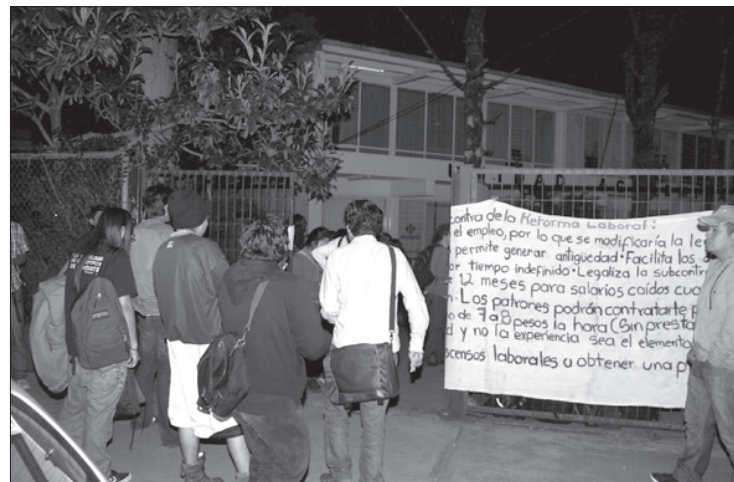 contra de la Reforma Laboral:
el empleo, por lo que se modificaría la le
permite generar antigüedad • Facilita los
or tiempo indefinido • Legaliza la subcontr
e 12 meses para salarios caídos cua
n. Los patrones podrán contratarte p
o de 7 a 8 pesos la hora (Sin presta
d y no la experiencia sea el elemento
scensos laborales u obtener una p